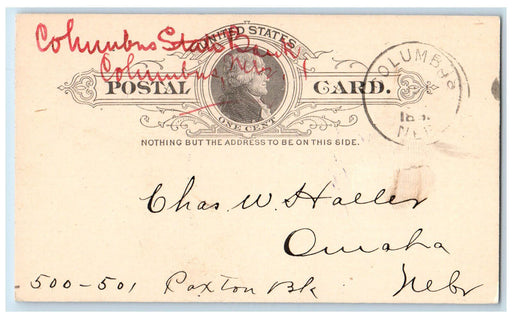 Columbus State Bank
Columbus, Neb.
UNITED STATES
POSTAL CARD.
ONE CENT
NOTHING BUT THE ADDRESS TO BE ON THIS SIDE.
COLUMBUS
NEB
Chas. W. Haller
Omaha
500-501 Paxton Blk Nebr